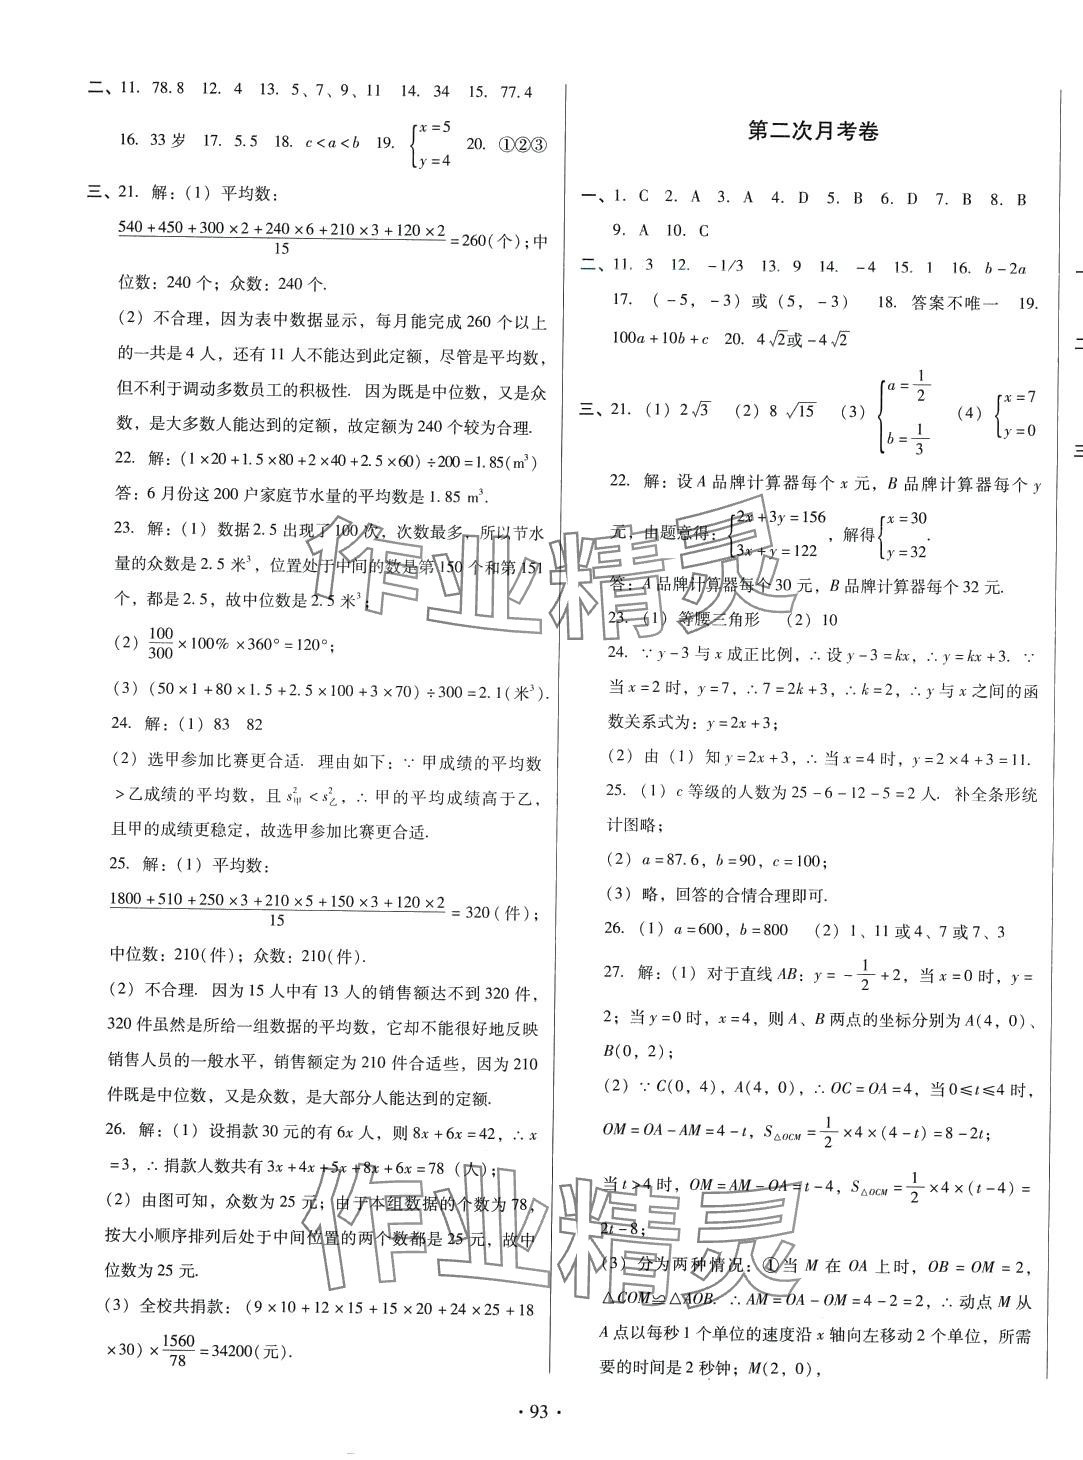 二、11. 78.8 12. 4 13. 5、7、9、11 14. 34 15. 77.4
16. 33 岁 17. 5.5 18. c<a<b 19. {x=5 y=4 20. ①②③
三、21. 解：(1) 平均数：
(540+450+300×2+240×6+210×3+120×2)/15=260(个)；中
位数：240 个；众数：240 个.
(2) 不合理，因为表中数据显示，每月能完成 260 个以上
的一共是 4 人，还有 11 人不能达到此定额，尽管是平均数，
但不利于调动多数员工的积极性. 因为既是中位数，又是众
数，是大多数人能达到的定额，故定额为 240 个较为合理.
22. 解：(1×20+1.5×80+2×40+2.5×60)÷200=1.85(m³)
答：6 月份这 200 户家庭节水量的平均数是 1.85 m³.
23. 解：(1) 数据 2.5 出现了 100 次，次数最多，所以节水
量的众数是 2.5 米³，位置处于中间的数是第 150 个和第 151
个，都是 2.5，故中位数是 2.5 米³；
(2) 100/300×100%×360°=120°；
(3) (50×1+80×1.5+2.5×100+3×70)÷300=2.1(米³).
24. 解：(1) 83 82
(2) 选甲参加比赛更合适. 理由如下：∵ 甲成绩的平均数
>乙成绩的平均数，且 s²甲<s²乙，∴ 甲的平均成绩高于乙，
且甲的成绩更稳定，故选甲参加比赛更合适.
25. 解：(1) 平均数：
(1800+510+250×3+210×5+150×3+120×2)/15=320(件)；
中位数：210(件)；众数：210(件).
(2) 不合理. 因为 15 人中有 13 人的销售额达不到 320 件，
320 件虽然是所给一组数据的平均数，它却不能很好地反映
销售人员的一般水平，销售额定为 210 件合适些，因为 210
件既是中位数，又是众数，是大部分人能达到的定额.
26. 解：(1) 设捐款 30 元的有 6x 人，则 8x+6x=42，∴ x
=3，∴ 捐款人数共有 3x+4x+5x+8x+6x=78（人）；
(2) 由图可知，众数为 25 元；由于本组数据的个数为 78，
按大小顺序排列后处于中间位置的两个数都是 25 元，故中
位数为 25 元.
(3) 全校共捐款：(9×10+12×15+15×20+24×25+18
×30)×1560/78=34200(元).
第二次月考卷
一、1. C 2. A 3. A 4. D 5. B 6. D 7. B 8. B
9. A 10. C
二、11. 3 12. -1/3 13. 9 14. -4 15. 1 16. b-2a
17. (-5，-3) 或 (5，-3) 18. 答案不唯一 19.
100a+10b+c 20. 4√2或-4√2
三、21. (1) 2√3 (2) 8√15 (3) {a=1/2 b=1/3 (4) {x=7 y=0
22. 解：设 A 品牌计算器每个 x 元，B 品牌计算器每个 y
元，由题意得：{2x+3y=156 3x+y=122，解得{x=30 y=32.
答：A 品牌计算器每个 30 元，B 品牌计算器每个 32 元.
23. (1) 等腰三角形 (2) 10
24. ∵ y-3 与 x 成正比例，∴ 设 y-3=kx，∴ y=kx+3. ∵
当 x=2 时，y=7，∴ 7=2k+3，∴ k=2，∴ y 与 x 之间的函
数关系式为：y=2x+3；
(2) 由 (1) 知 y=2x+3，∴ 当 x=4 时，y=2×4+3=11.
25. (1) c 等级的人数为 25-6-12-5=2 人. 补全条形统
计图略；
(2) a=87.6，b=90，c=100；
(3) 略，回答的合情合理即可.
26. (1) a=600，b=800 (2) 1、11 或 4、7 或 7、3
27. 解：(1) 对于直线 AB：y=-1/2+2，当 x=0 时，y=
2；当 y=0 时，x=4，则 A、B 两点的坐标分别为 A(4，0)、
B(0，2)；
(2) ∵ C(0，4)，A(4，0)，∴ OC=OA=4，当 0≤t≤4 时，
OM=OA-AM=4-t，S△OCM=1/2×4×(4-t)=8-2t；
当 t>4 时，OM=AM-OA=t-4，S△OCM=1/2×4×(t-4)=
2t-8；
(3) 分为两种情况：①当 M 在 OA 上时，OB=OM=2，
△COM≌△AOB. ∴ AM=OA-OM=4-2=2，∴ 动点 M 从
A 点以每秒 1 个单位的速度沿 x 轴向左移动 2 个单位，所需
要的时间是 2 秒钟；M(2，0)，
二
三
作业精灵
作业精灵
· 93 ·